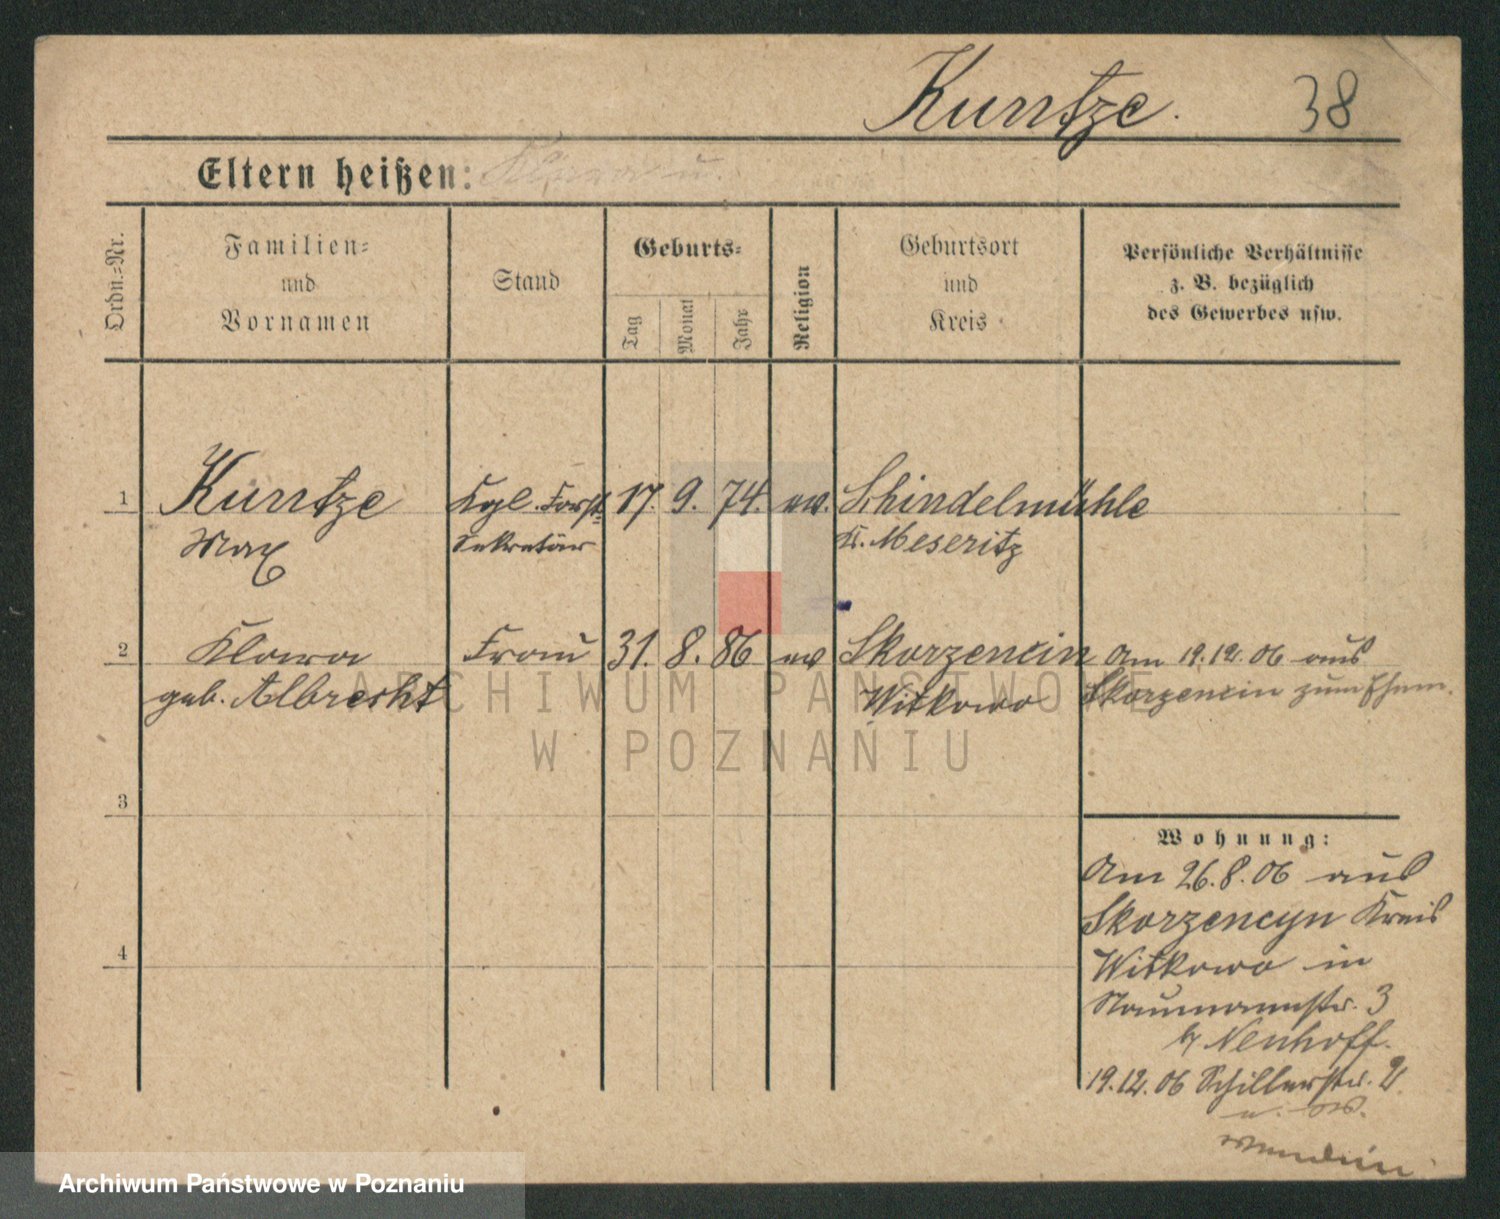 Kuntze. 38
Eltern heißen:
Ordn.=Nr.
Familien=
und
Vornamen
Stand
Geburts=
Tag
Monat
Jahr
Religion
Geburtsort
und
Kreis
Persönliche Verhältnisse
z. B. bezüglich
des Gewerbes usw.
1 Kuntze Kgl. Forst= 17. 9. 74. ev. Schindelmühle
Max Sekretär Kr. Meseritz
2 Klara Frau 31. 8. 86 ev Skorzencin Am 19.12.06 aus
geb. Albrecht Witkowo Skorzencin zum Ehem.
ARCHIWUM PAŃSTWOWE
W POZNANIU
3
4
Wohnung:
Am 26.8.06 aus
Skorzencyn Kreis
Witkowo in
Naumannstr. 3
b/ Neuhoff.
19.12.06 Schillerstr.
Archiwum Państwowe w Poznaniu